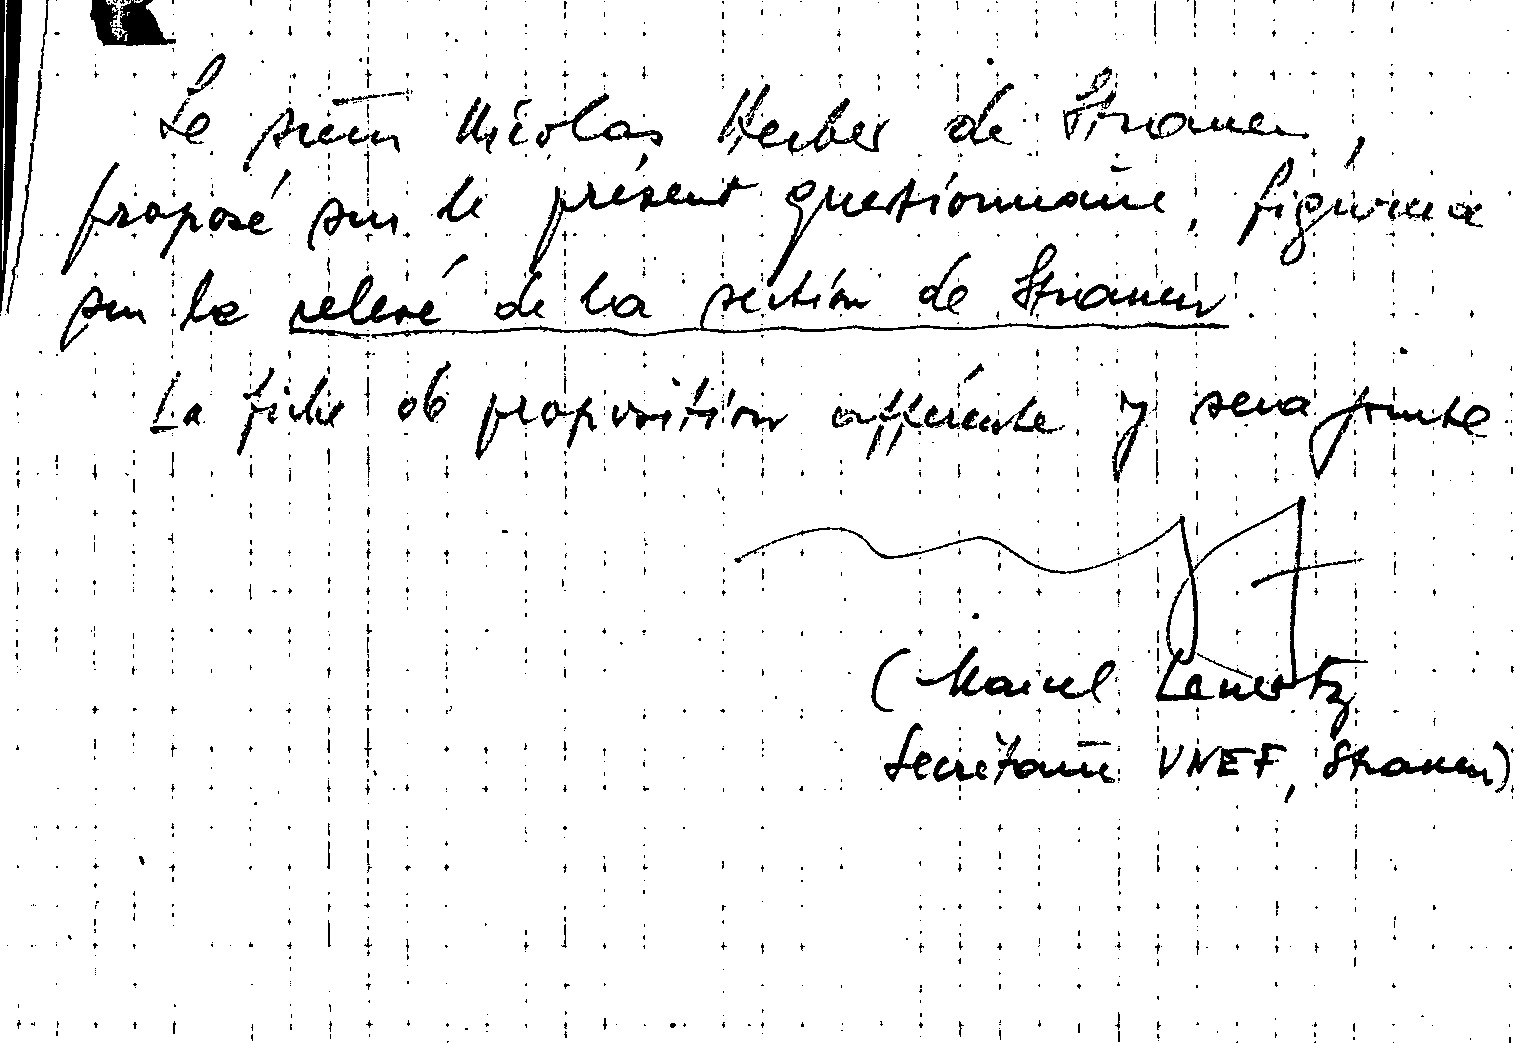 Le sieur Nicolas Herber de Stranen,
proposé sur le présent questionnaire, figurera
sur le relevé de la section de Stranen.
La fiche de proposition afférente y sera jointe
(Marcel Lenertz
Secrétaire UNEF, Stranen)